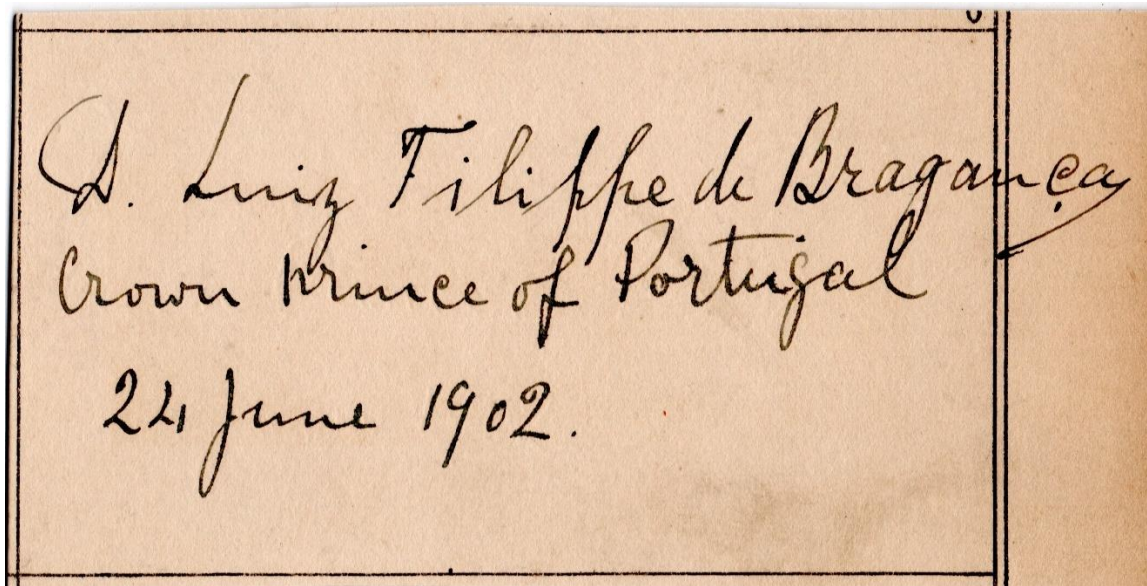 D. Luiz Filippe de Bragança
Crown Prince of Portugal
24 June 1902.